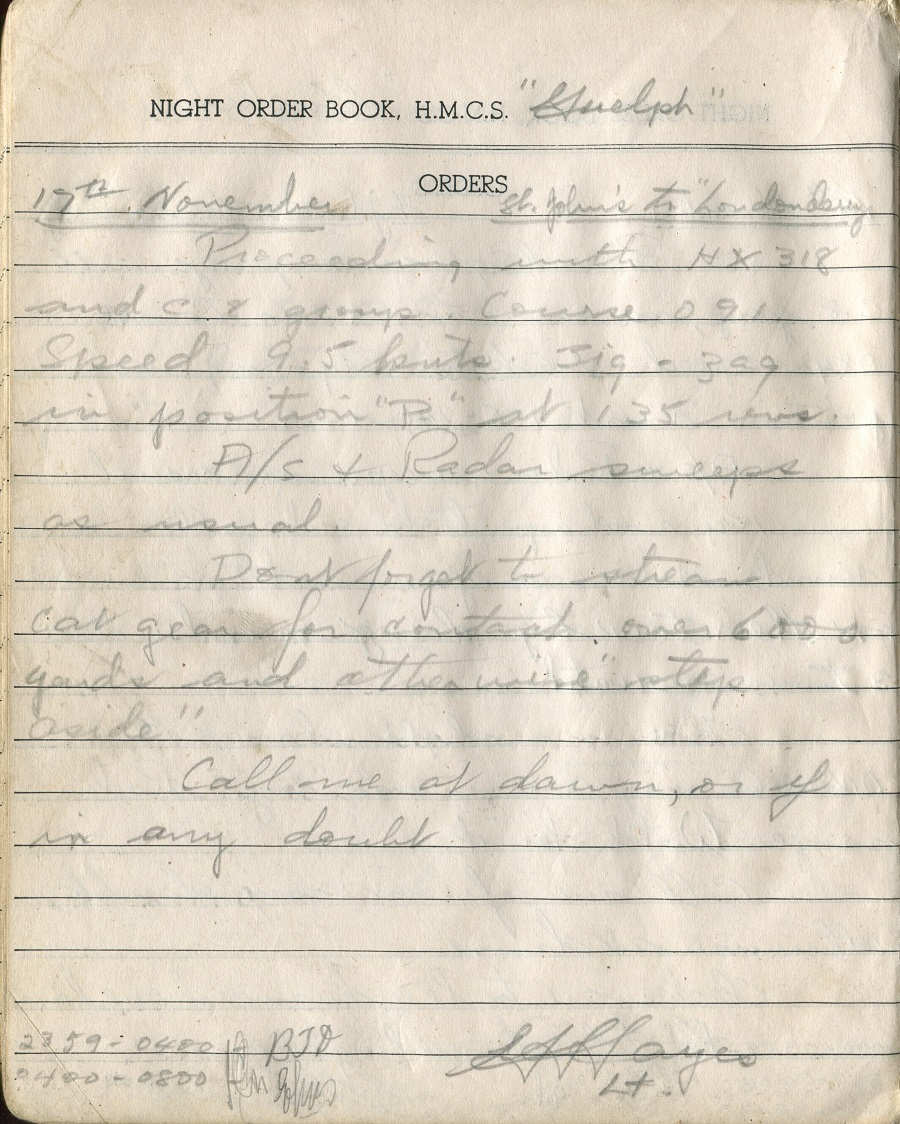 NIGHT ORDER BOOK, H.M.C.S. "Guelph"
ORDERS
17th. November St. John's to "Londonderry
Proceeding with HX 318
and C. 8 group. Course 091.
Speed 9.5 knts. Zig-zag
in position "P" at 135 revs.
A/S & Radar sweeps
as usual.
Don't forget to stream
cat gear for contacts over 6000
yards and otherwise "step
aside"
Call me at dawn, or if
in any doubt.
2359 - 0400 BJD
0400 - 0800
Hayes
Lt.